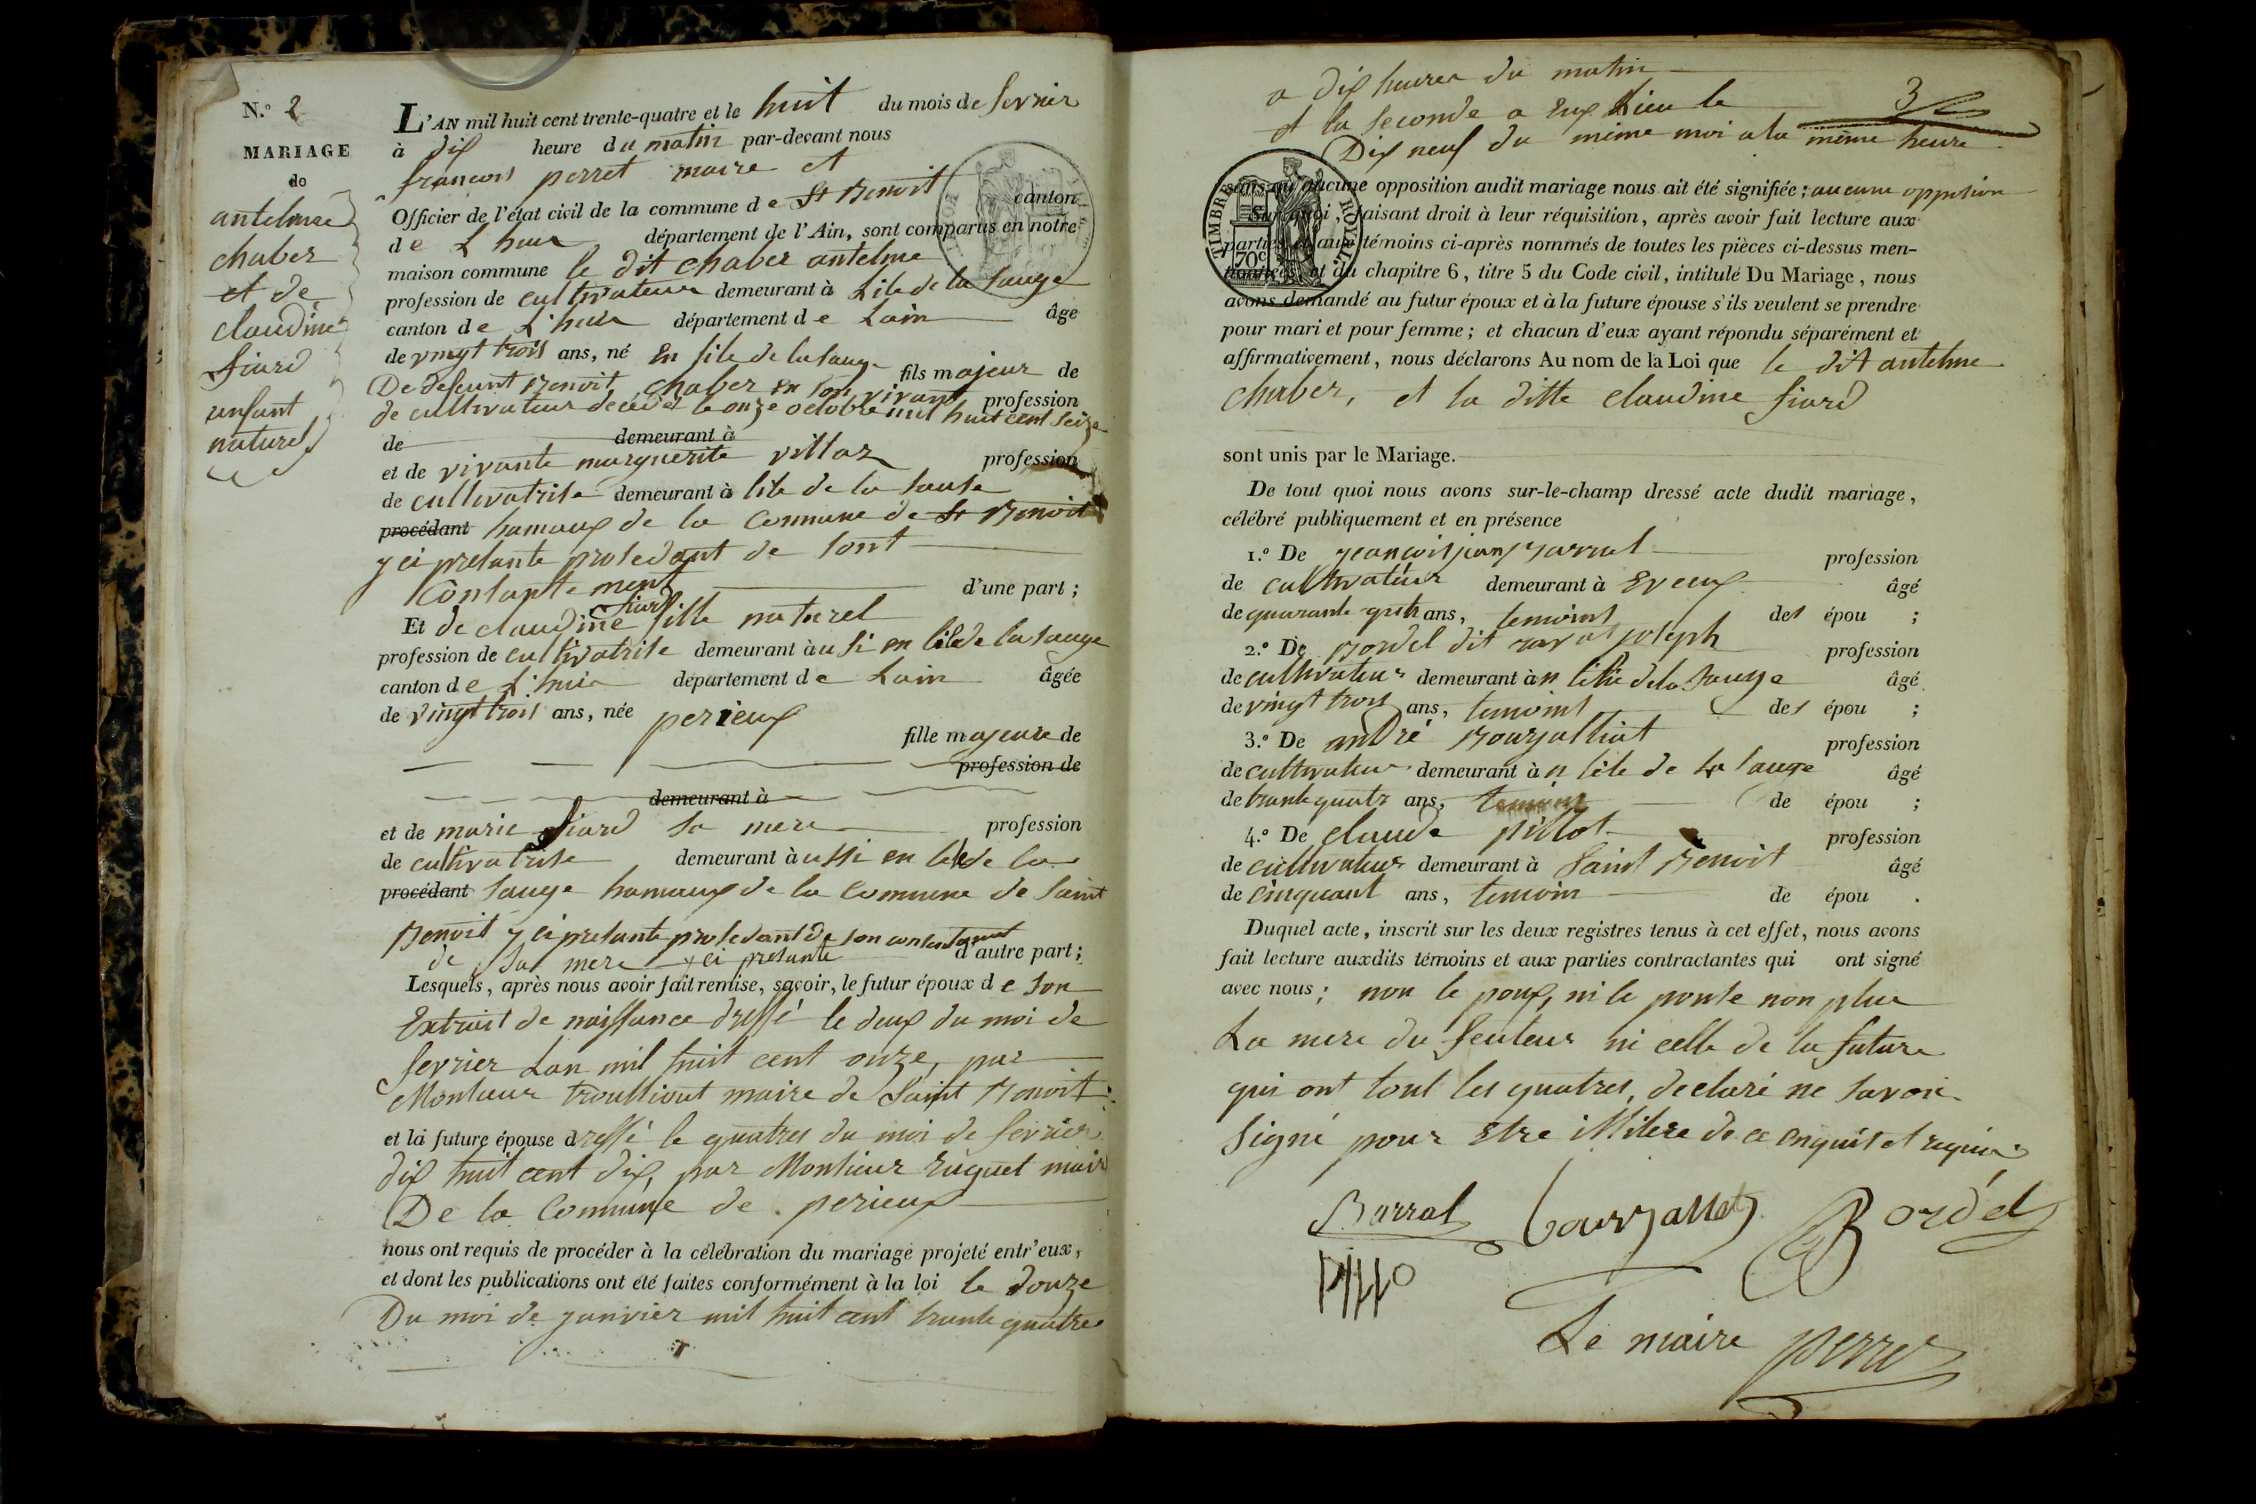 N.º 2
MARIAGE
de
antelme
chaber
et de
claudine
fiard
enfant
naturel
L'AN mil huit cent trente-quatre et le huit du mois de fevrier
à dix heure du matin par-devant nous
francois perret maire et
Officier de l'état civil de la commune de St Benoit canton
de Lhuis département de l'Ain, sont comparus en notre
maison commune le dit chaber antelme
profession de cultivateur demeurant à Lile de la sauge
canton de L'huis département de Lain âge
de vingt trois ans, né En lile de la sauge fils majeur de
De defeunt Benoit chaber en son vivant profession
de cultivateur decédé le onze octobre mil huit cent seize
de demeurant à
et de vivante marguerite villaz profession
de cultivatrise demeurant à lile de la sause
procédant hamaux de la Commune de St Benoit
y ci presante prosedant de sont
Consantement d'une part ;
fiard
Et de claudine fille naturel
profession de cultivatrise demeurant à usi en lile de la sauge
canton de L'huis département de Lain âgée
de vingt trois ans, née perieux
fille majeure de
profession de
demeurant à
et de marie fiard sa mere profession
de cultivatrise demeurant à ussi en lile de la
procédant sauge hamaux de la Commune de saint
Benoit y ci presante prosedant de son consentement
de sa mere y ci presante d'autre part ;
Lesquels, après nous avoir fait remise, savoir, le futur époux de son
Extrait de naissance dressé le deux du moi de
fevrier Lan mil huit cent onze, par
Monsieur troulliout maire de Saint Benoit
et la future épouse dressé le quatres du moi de fevrier
dix huit cent dix, par Monsieur ruquet maire
De la Commune de perieux
nous ont requis de procéder à la célébration du mariage projeté entr'eux,
et dont les publications ont été faites conformément à la loi le douze
Du moi de janvier mil huit cent trante quatre
3
a dix heures du matin
et la seconde a Eux Lieu le
Dix neuf du même moi a la même heure
TIMBRE ROYAL
70c
sans qu'aucune opposition audit mariage nous ait été signifiée ; aucune oppsion
Sur quoi, faisant droit à leur réquisition, après avoir fait lecture aux
parties et aux témoins ci-après nommés de toutes les pièces ci-dessus men-
tionnées, et du chapitre 6, titre 5 du Code civil, intitulé Du Mariage, nous
avons demandé au futur époux et à la future épouse s'ils veulent se prendre
pour mari et pour femme ; et chacun d'eux ayant répondu séparément et
affirmativement, nous déclarons Au nom de la Loi que le dit antelme
chaber, et la ditte claudine fiard
sont unis par le Mariage.
De tout quoi nous avons sur-le-champ dressé acte dudit mariage,
célébré publiquement et en présence
1.º De Barral profession
de cultivateur demeurant à Eveux âgé
de quarante ans, temoins des épou ;
2.º De Bordel dit joseph profession
de cultivateur demeurant à n lile de la sauge âgé
de vingt trois ans, temoins des épou ;
3.º De andré Bourjalliat profession
de cultivateur demeurant à n lile de la sauge âgé
de trante quatr ans, temoins de épou ;
4.º De claude pillot profession
de cultivateur demeurant à Saint Benoit âgé
de cinquant ans, temoin de épou .
Duquel acte, inscrit sur les deux registres tenus à cet effet, nous avons
fait lecture auxdits témoins et aux parties contractantes qui ont signé
avec nous ; non le poux, ni le pouse non plus
La mere du feuteur ni celle de la future
qui ont tout les quatres, declaré ne savoir
signé pour Etre illitere de ce enquis et requis
Barral Bourjalliat Bordel
pillo
Le maire perret